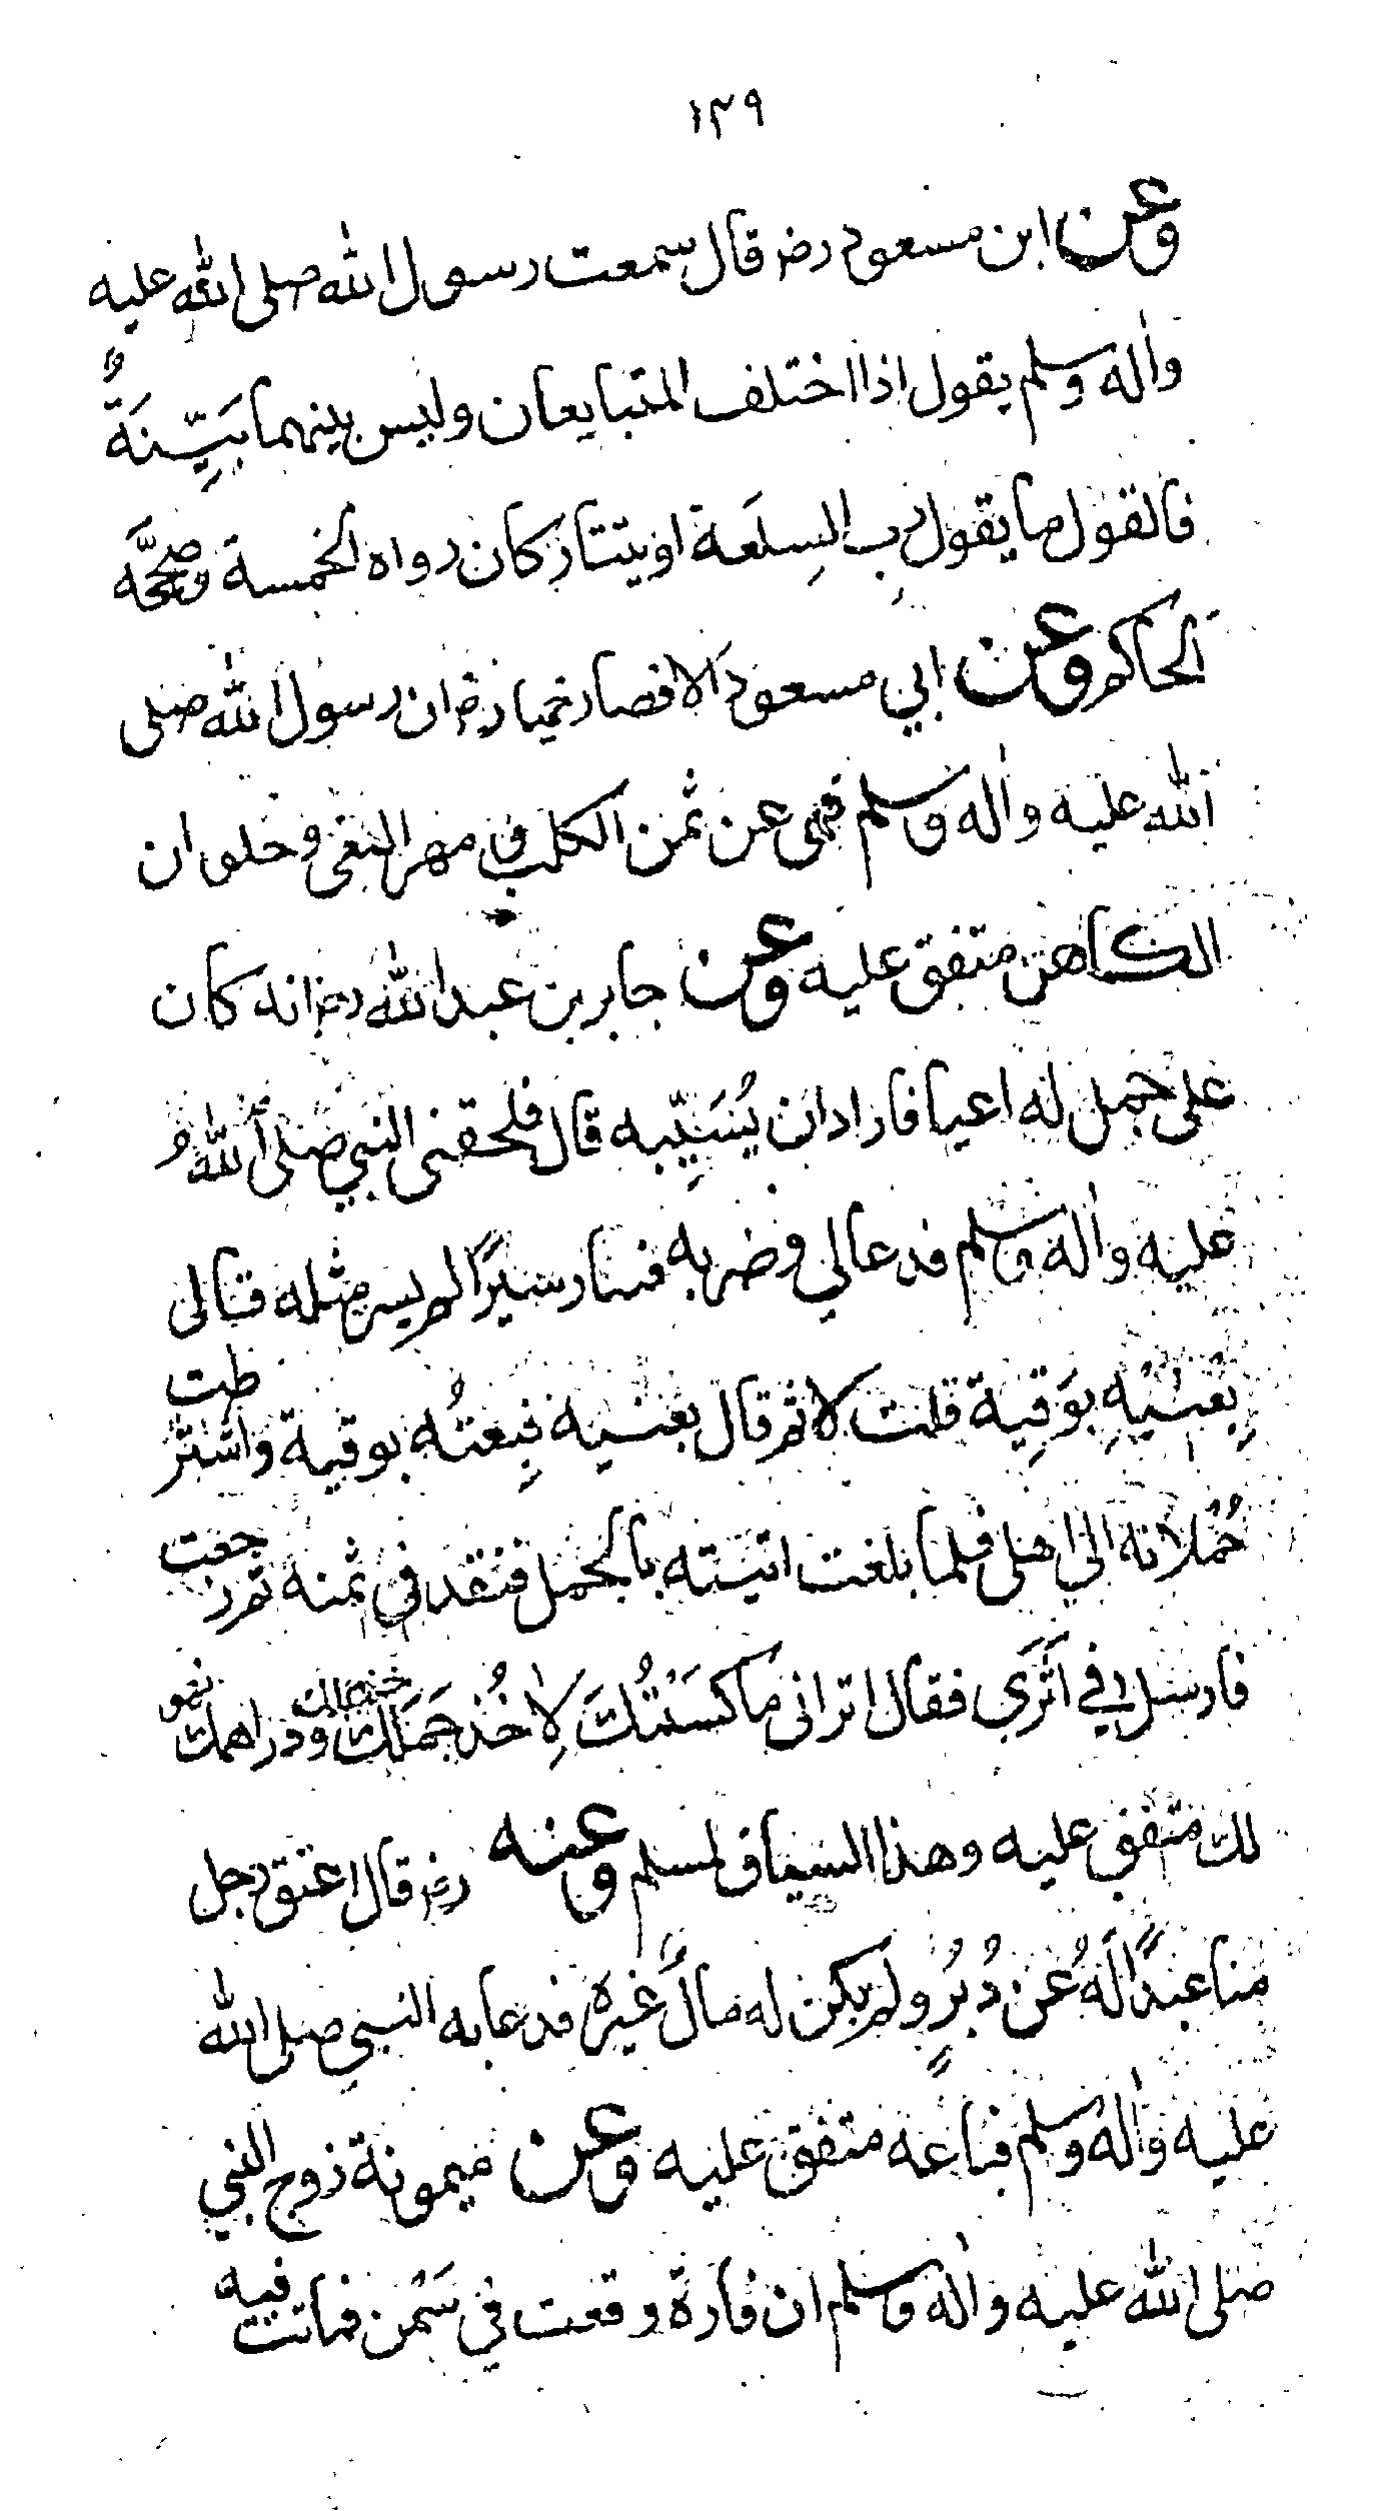 ١٣٩
وعن ابن مسعود رضہ قال سمعت رسول الله صلى الله عليه
واله وسلم يقول اذا اختلف المتبايعان وليس بينهما بَيِّنَةٌ
فالقول ما يقول رب السِلعَة او يتتاركان رواه الخمسة وصححَّه
الحاكم وعن ابي مسعود الانصاري رضہ ان رسول الله صلى
الله عليه واله وسلم نهى عن ثمن الكلب و مهر البغي وحلوان
الكاهن متفق عليه وعن جابر بن عبد الله رضہ انه كان
على جمل له اعيا فاراد ان يُسَيِّبه قال فلحقني النبي صلى اللهُ
عليه واله وسلم فدعا لي وضربه فسار سيرًا لم يسر مثله قال
بِعْنيْهِ بوَقِيَة قلت لا ثم قال بعنيه فبِعتُه بوقية واشترطت
حُمْلانه الى اهلى فلما بلغت اتيته بالجمل فنقدني ثمنه ثم رجعت
فارسل في اَثَرَي فقال اتراني ماكَسْتُكَ لِاٰخُذ جَمَلَكَ خذ جملك ودراهمك فهو
لك متفق عليه وهذا السياق لمسلم وعنه رضہ قال اعتق رجل
منا عبدًا لَهُ عن دُبُرٍ ولم يكن له مالٌ غيره فدعا به النبي صلى الله
عليه واله وسلم فباعه متفق عليه وعن ميمونة زوج النبي
صلى الله عليه واله وسلم ان فارة وقعت في سَمْن فماتت فيه